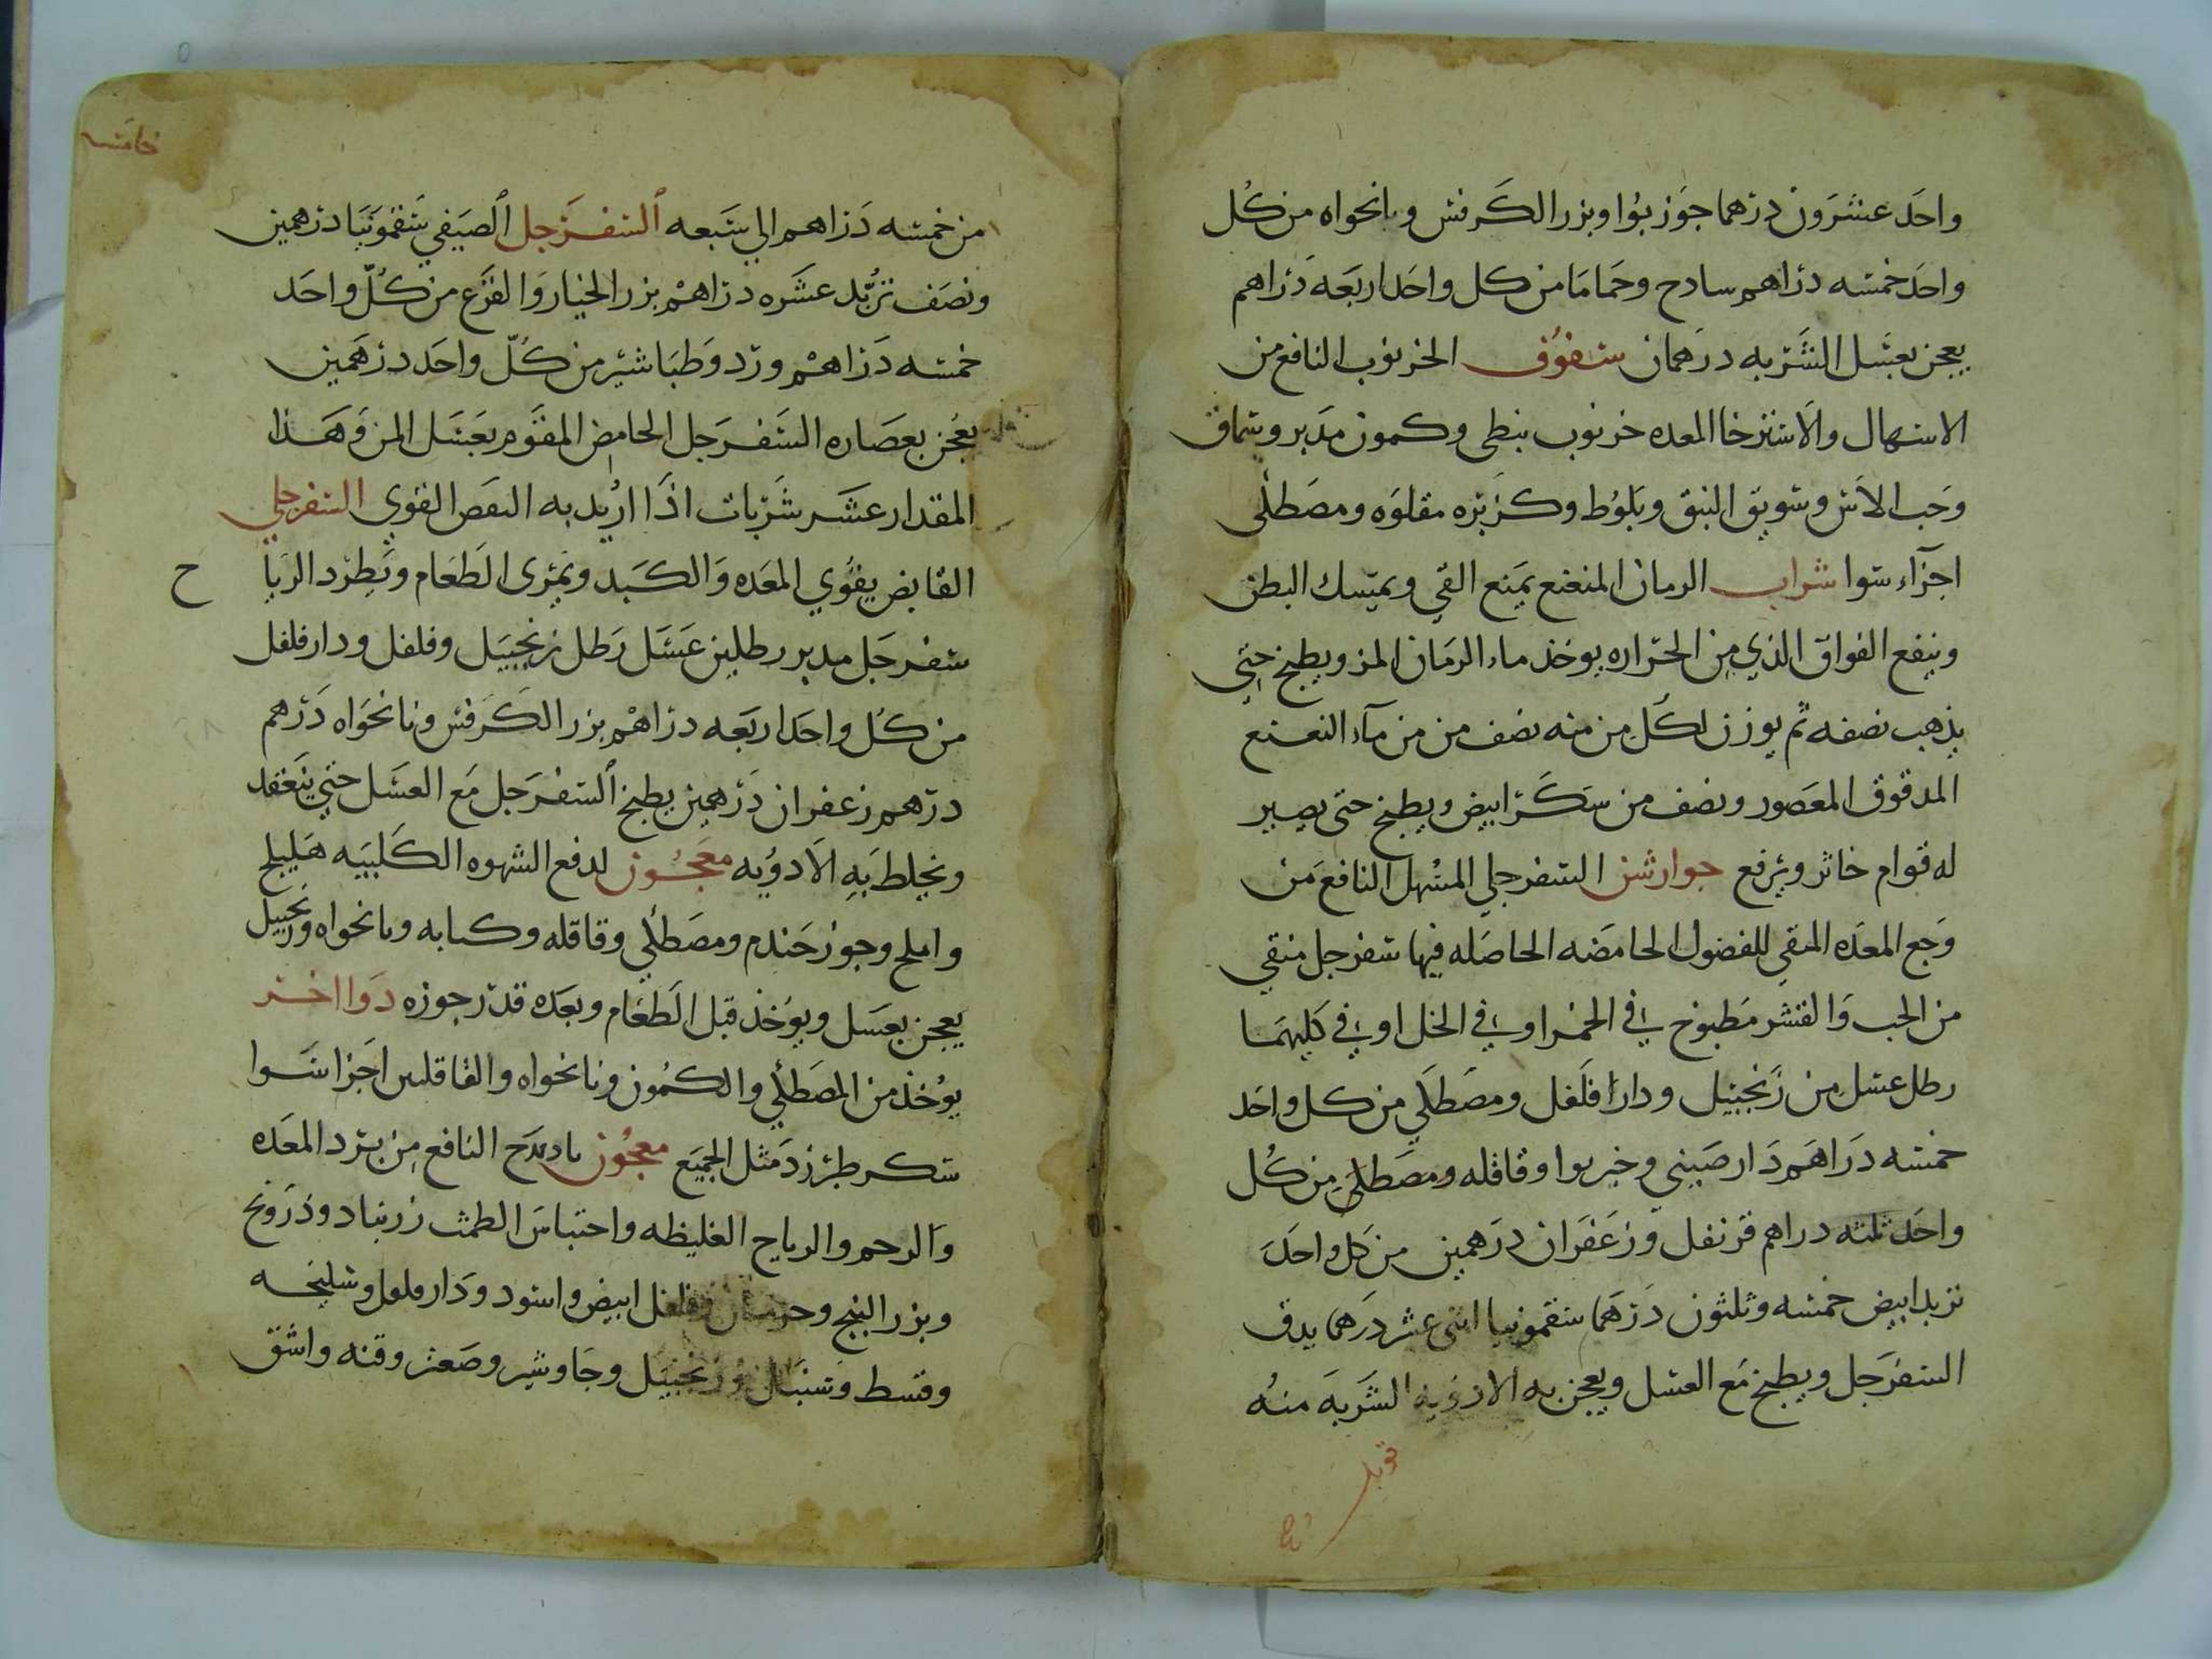 واحد عشرون درهما جوز بوا وبزر الكرفس ونانخواه من كل
واحد خمسه دراهم سادج وحماما من كل واحد اربعه دراهم
يعجن بعسل الشربه درهمان سفوف الخرنوب النافع من
الاسهال والاسترخا المعده خرنوب نبطى وكمون مدبر وسماق
وحب الاس وسويق النبق وبلوط وكزبره مقلوه ومصطكى
اجزآء سوا شراب الرمان المنعنع يمنع القي ويمسك البطن
وينفع الفواق الذي من الحراره يوخذ ماء الرمان المز ويطبخ حتي
يذهب نصفه ثم يوزن لكل من منه نصف من من مآء النعنع
المدقوق المعصور ونصف من سكر ابيض ويطبخ حتى يصير
له قوام خاثر ويرفع جوارشن السفرجلي المسهل النافع من
وجع المعده المنقي للفضول الحامضه الحاصله فيها سفرجل منقي
من الحب والقشر مطبوخ في الخمر او في الخل او في كليهما
رطل عسل من زنجبيل ودار فلفل ومصطكي من كل واحد
خمسه دراهم دارصيني وخيربوا وقاقله ومصطكي من كل
واحد ثلثه دراهم قرنفل وزعفران درهمين من كل واحد
تربد ابيض خمسه وثلثون درهما سقمونيا اثنى عشر درهما يدق
السفرجل ويطبخ مع العسل ويعجن به الادويه الشربه منه
قوبل
خامسه
من خمسه دراهم الي سبعه السفرجل الصيفي سقمونيا درهمين
ونصف تربد عشره دراهم بزر الخيار والقرع من كل واحد
خمسه دراهم ورد وطباشير من كل واحد درهمين
يعجن بعصاره السفرجل الحامض المقوم بعسل المن وهذا
المقدار عشر شربات اذا اريد به النفض القوي السفرجلي
القابض يقوي المعده والكبد ويمرى الطعام ويطرد الريا ح
سفرجل مدبر رطلين عسل رطل زنجبيل وفلفل ودارفلفل
من كل واحد اربعه دراهم بزر الكرفس ونانخواه درهم
درهم زعفران درهمين يطبخ السفرجل مع العسل حتي ينعقد
ويخلط به الادويه معجون لدفع الشهوه الكلبيه هليلج
واملج وجوز جندم ومصطكي وقاقله وكبابه ونانخواه وزنجبيل
يعجن بعسل ويوخذ قبل الطعام وبعده قدر جوزه دوا اخر
يوخذ من المصطكي والكمون ونانخواه والقاقلين اجزا سوا
سكر طبرزد مثل الجميع معجون النافع من برد المعده
والرحم والرياح الغليظه واحتباس الطمث زرنباد ودرونج
وبزر البنج وفلفل ابيض واسود ودارفلفل وسليخه
وقسط وسنبل وزنجبيل وجاوشير وصعتر وقنه واشق